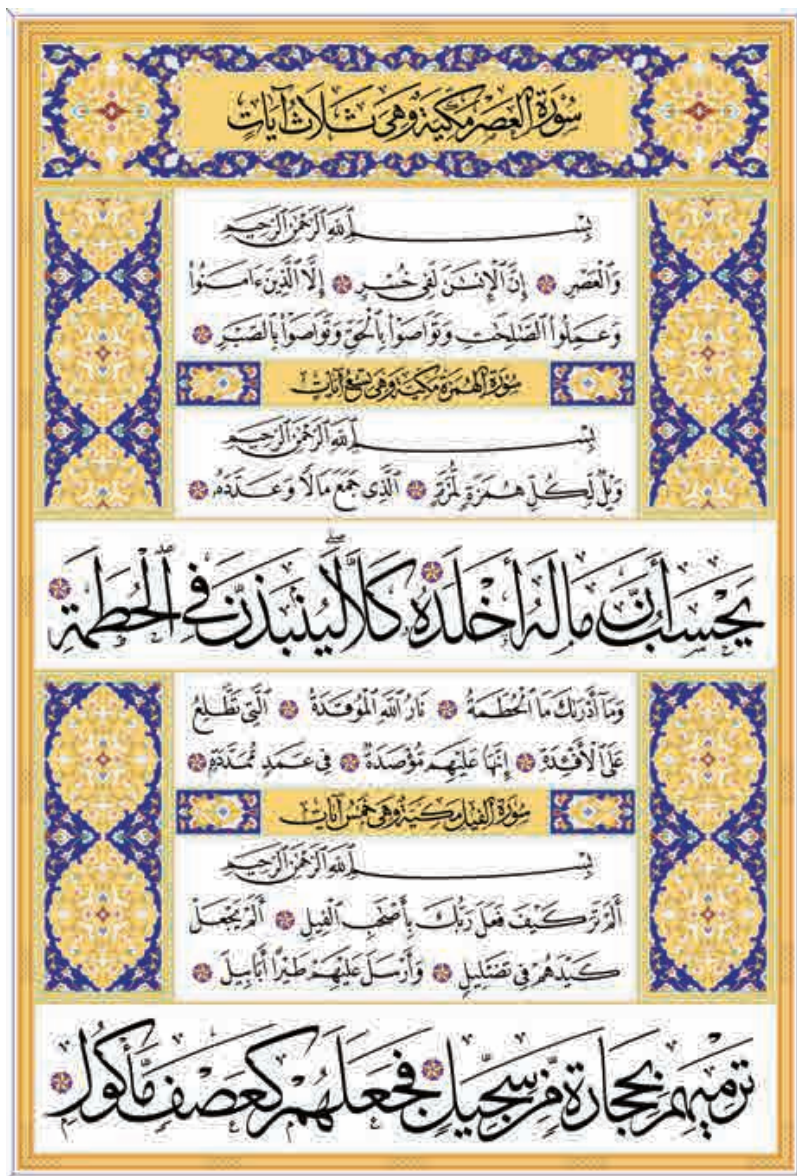 سُورَةُ الْعَصْرِ مَكِّيَّةٌ وَهِيَ ثَلَاثُ آيَاتٍ
بِسْمِ ٱللَّهِ ٱلرَّحْمَٰنِ ٱلرَّحِيمِ
وَٱلْعَصْرِ ۝ إِنَّ ٱلْإِنسَٰنَ لَفِى خُسْرٍ ۝ إِلَّا ٱلَّذِينَ ءَامَنُوا۟
وَعَمِلُوا۟ ٱلصَّٰلِحَٰتِ وَتَوَاصَوْا۟ بِٱلْحَقِّ وَتَوَاصَوْا۟ بِٱلصَّبْرِ ۝
سُورَةُ الْهُمَزَةِ مَكِّيَّةٌ وَهِيَ تِسْعُ آيَاتٍ
بِسْمِ ٱللَّهِ ٱلرَّحْمَٰنِ ٱلرَّحِيمِ
وَيْلٌ لِّكُلِّ هُمَزَةٍ لُّمَزَةٍ ۝ ٱلَّذِى جَمَعَ مَالًا وَعَدَّدَهُۥ ۝
يَحْسَبُ أَنَّ مَالَهُ أَخْلَدَهُ ۝ كَلَّا ۖ لَيُنۢبَذَنَّ فِي ٱلْحُطَمَةِ ۝
وَمَآ أَدْرَىٰكَ مَا ٱلْحُطَمَةُ ۝ نَارُ ٱللَّهِ ٱلْمُوقَدَةُ ۝ ٱلَّتِى تَطَّلِعُ
عَلَى ٱلْأَفْـِٔدَةِ ۝ إِنَّهَا عَلَيْهِم مُّؤْصَدَةٌ ۝ فِى عَمَدٍ مُّمَدَّدَةٍ ۝
سُورَةُ الْفِيلِ مَكِّيَّةٌ وَهِيَ خَمْسُ آيَاتٍ
بِسْمِ ٱللَّهِ ٱلرَّحْمَٰنِ ٱلرَّحِيمِ
أَلَمْ تَرَ كَيْفَ فَعَلَ رَبُّكَ بِأَصْحَٰبِ ٱلْفِيلِ ۝ أَلَمْ يَجْعَلْ
كَيْدَهُمْ فِى تَضْلِيلٍ ۝ وَأَرْسَلَ عَلَيْهِمْ طَيْرًا أَبَابِيلَ ۝
تَرْمِيهِم بِحِجَارَةٍ مِّن سِجِّيلٍ ۝ فَجَعَلَهُمْ كَعَصْفٍ مَّأْكُولٍ ۝